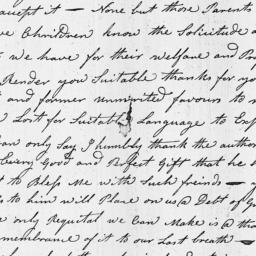 accept it — None but those Parents
ve Childdren know the Solicitude a
we have for their welfare and Pro
Render you Suitable thanks for yo
and former unmirited favours to m
Lost for Suitable Language to Exp
an only Say I humbly thank the autho
Every Good and Perfect Gift that he h
t to Bless Me with Such freinds — a
s to him will Place on us a Debt of G
e only Requital we Can Make is a tha
membrance of it to our Last breath —